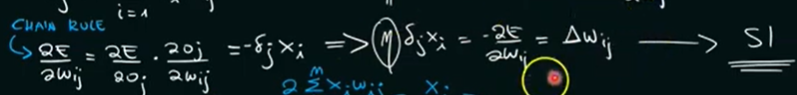 i=1
CHAIN RULE
∂E/∂wij = ∂E/∂oj · ∂oj/∂wij = -δj xi => η δj xi = -∂E/∂wij = Δwij → SI
∂ Σ^M xi wij xi